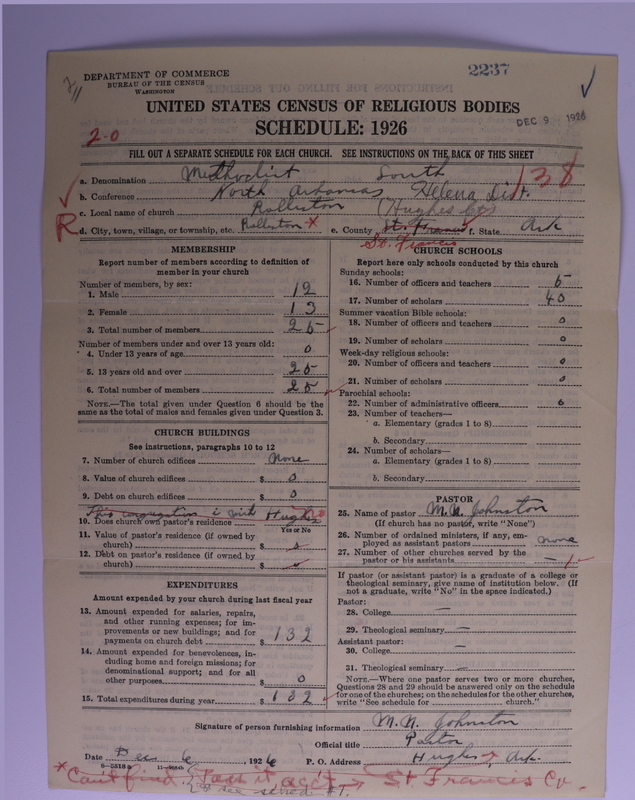 2237
DEPARTMENT OF COMMERCE
BUREAU OF THE CENSUS
WASHINGTON
UNITED STATES CENSUS OF RELIGIOUS BODIES
DEC 9 1926
SCHEDULE: 1926
2-0
FILL OUT A SEPARATE SCHEDULE FOR EACH CHURCH. SEE INSTRUCTIONS ON THE BACK OF THIS SHEET
a. Denomination Methodist South 138
b. Conference North Arkansas Helena Dist.
c. Local name of church Rolliston (Hughes Co)
R d. City, town, village, or township, etc. Rolliston * e. County St. Francis f. State Ark
St. Francis
MEMBERSHIP
Report number of members according to definition of
member in your church
Number of members, by sex:
1. Male 12
2. Female 13
3. Total number of members 25
Number of members under and over 13 years old:
4. Under 13 years of age 0
5. 13 years old and over 25
6. Total number of members 25
NOTE.—The total given under Question 6 should be the
same as the total of males and females given under Question 3.
CHURCH BUILDINGS
See instructions, paragraphs 10 to 12
7. Number of church edifices None
8. Value of church edifices $ 0
9. Debt on church edifices $ 0
This congregation is with Hughes
10. Does church own pastor's residence
Yes or No
11. Value of pastor's residence (if owned by
church) $
12. Debt on pastor's residence (if owned by
church) $
EXPENDITURES
Amount expended by your church during last fiscal year
13. Amount expended for salaries, repairs,
and other running expenses; for im-
provements or new buildings; and for
payments on church debt $ 132
14. Amount expended for benevolences, in-
cluding home and foreign missions; for
denominational support; and for all
other purposes $ 0
15. Total expenditures during year $ 132
CHURCH SCHOOLS
Report here only schools conducted by this church
Sunday schools:
16. Number of officers and teachers 5
17. Number of scholars 40
Summer vacation Bible schools:
18. Number of officers and teachers 0
19. Number of scholars 0
Week-day religious schools:
20. Number of officers and teachers 0
21. Number of scholars 0
Parochial schools:
22. Number of administrative officers 0
23. Number of teachers—
a. Elementary (grades 1 to 8)
b. Secondary
24. Number of scholars—
a. Elementary (grades 1 to 8)
b. Secondary
PASTOR
25. Name of pastor M. N. Johnston
(If church has no pastor, write "None")
26. Number of ordained ministers, if any, em-
ployed as assistant pastors none
27. Number of other churches served by the
pastor or his assistants — 1
If pastor (or assistant pastor) is a graduate of a college or
theological seminary, give name of institution below. (If
not a graduate, write "No" in the space indicated.)
Pastor:
28. College —
29. Theological seminary —
Assistant pastor:
30. College —
31. Theological seminary —
NOTE.—Where one pastor serves two or more churches,
Questions 28 and 29 should be answered only on the schedule
for one of the churches; on the schedules for the other churches,
write "See schedule for church."
Signature of person furnishing information M. N. Johnston
Official title Pastor
Date Dec 6, 1926 P. O. Address Hughes, Ark.
* Can't find St Francis Co.